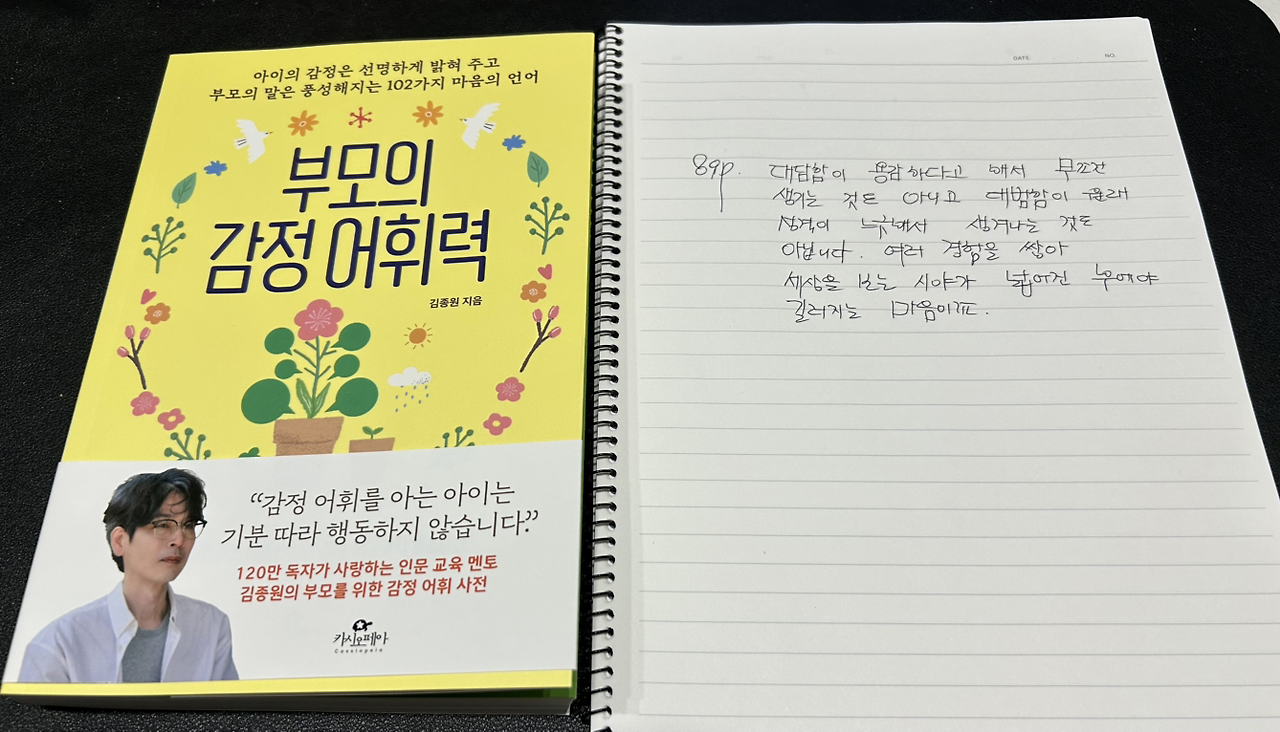 아이의 감정은 선명하게 밝혀 주고
부모의 말은 풍성해지는 102가지 마음의 언어
부모의
감정 어휘력
김종원 지음
“감정 어휘를 아는 아이는
기분 따라 행동하지 않습니다.”
120만 독자가 사랑하는 인문 교육 멘토
김종원의 부모를 위한 감정 어휘 사전
카시오페아
Cassiopeia
DATE. NO.
89p. 대담함이 용감하다고 해서 무조건
생기는 것도 아니고 대범함이 원래
성격이 느긋해서 생겨나는 것도
아닙니다. 여러 경험을 쌓아
세상을 보는 시야가 넓어진 후에야
길러지는 마음이죠.